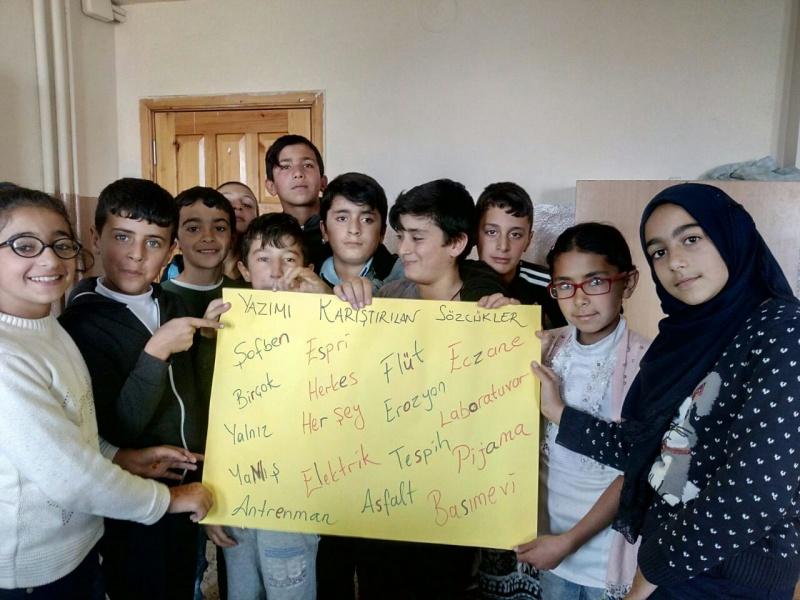 YAZIMI KARIŞTIRILAN SÖZCÜKLER
Şofben Espri Flüt Eczane
Birçok Herkes Erozyon Laboratuvar
Yalnız Her şey Tespih Pijama
Yanlış Elektrik Asfalt Basımevi
Antrenman